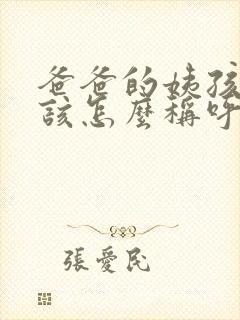 爸爸的姨孩
該怎麼稱呼
張愛民